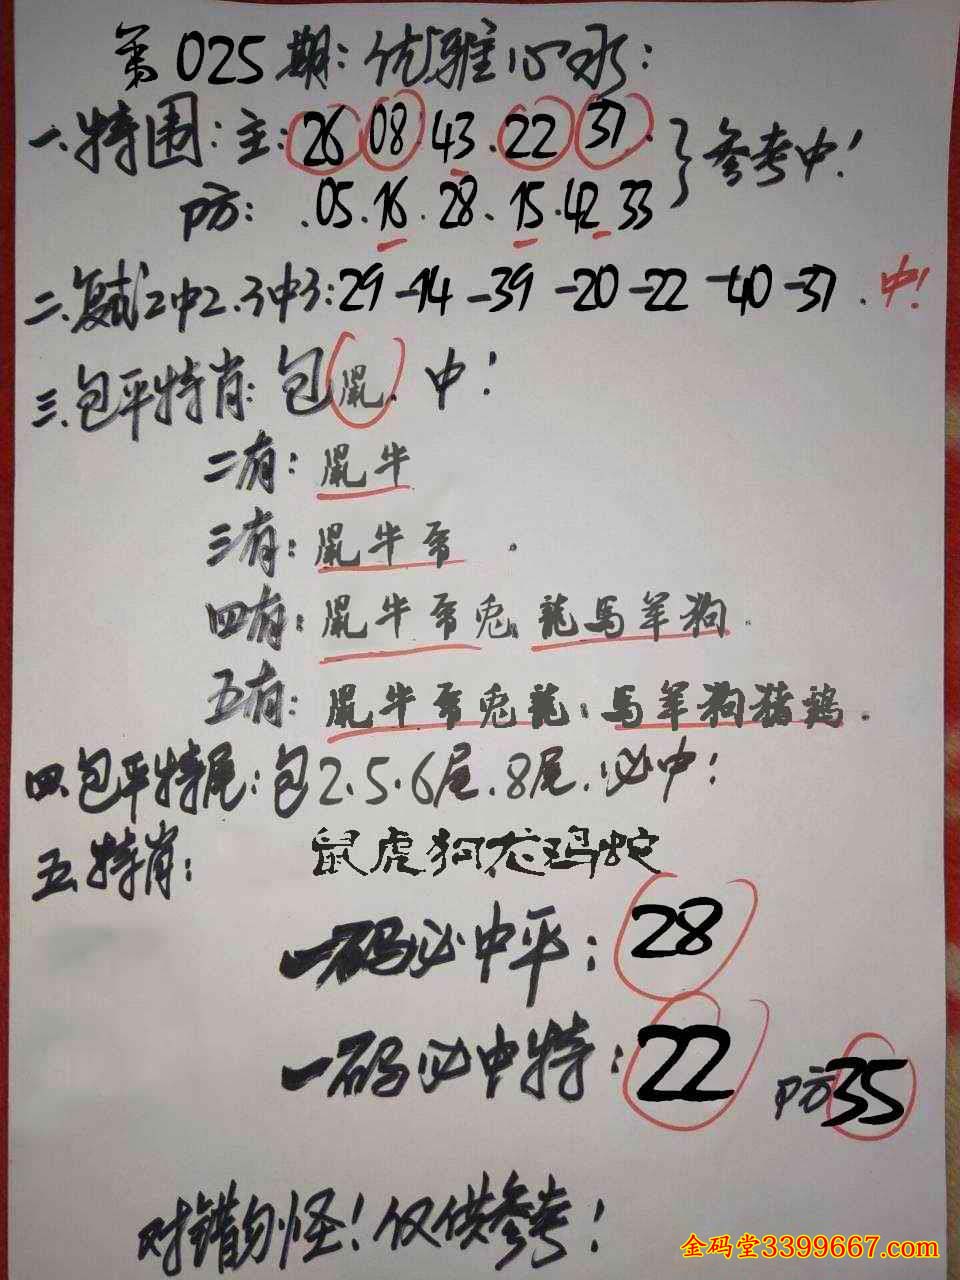 第025期:优雅心水:
一.特围:主:26 08.43.22 37.}参考中!
防:.05.16.28.15.42 33
二.复式2中2.3中3:29-14-39-20-22-40-37.中!
三.包平特肖:包鼠.中!
二有:鼠牛
三有:鼠牛虎.
四有:鼠牛虎兔龍馬羊狗.
五有:鼠牛虎兔龍馬羊狗猪鷄.
四.包平特尾:包2.5.6尾.8尾.必中!
五.特肖:鼠虎狗龙鸡蛇
一码必中平:28
一码必中特:22 防35
对错勿怪!仅供参考!
金码堂3399667.com